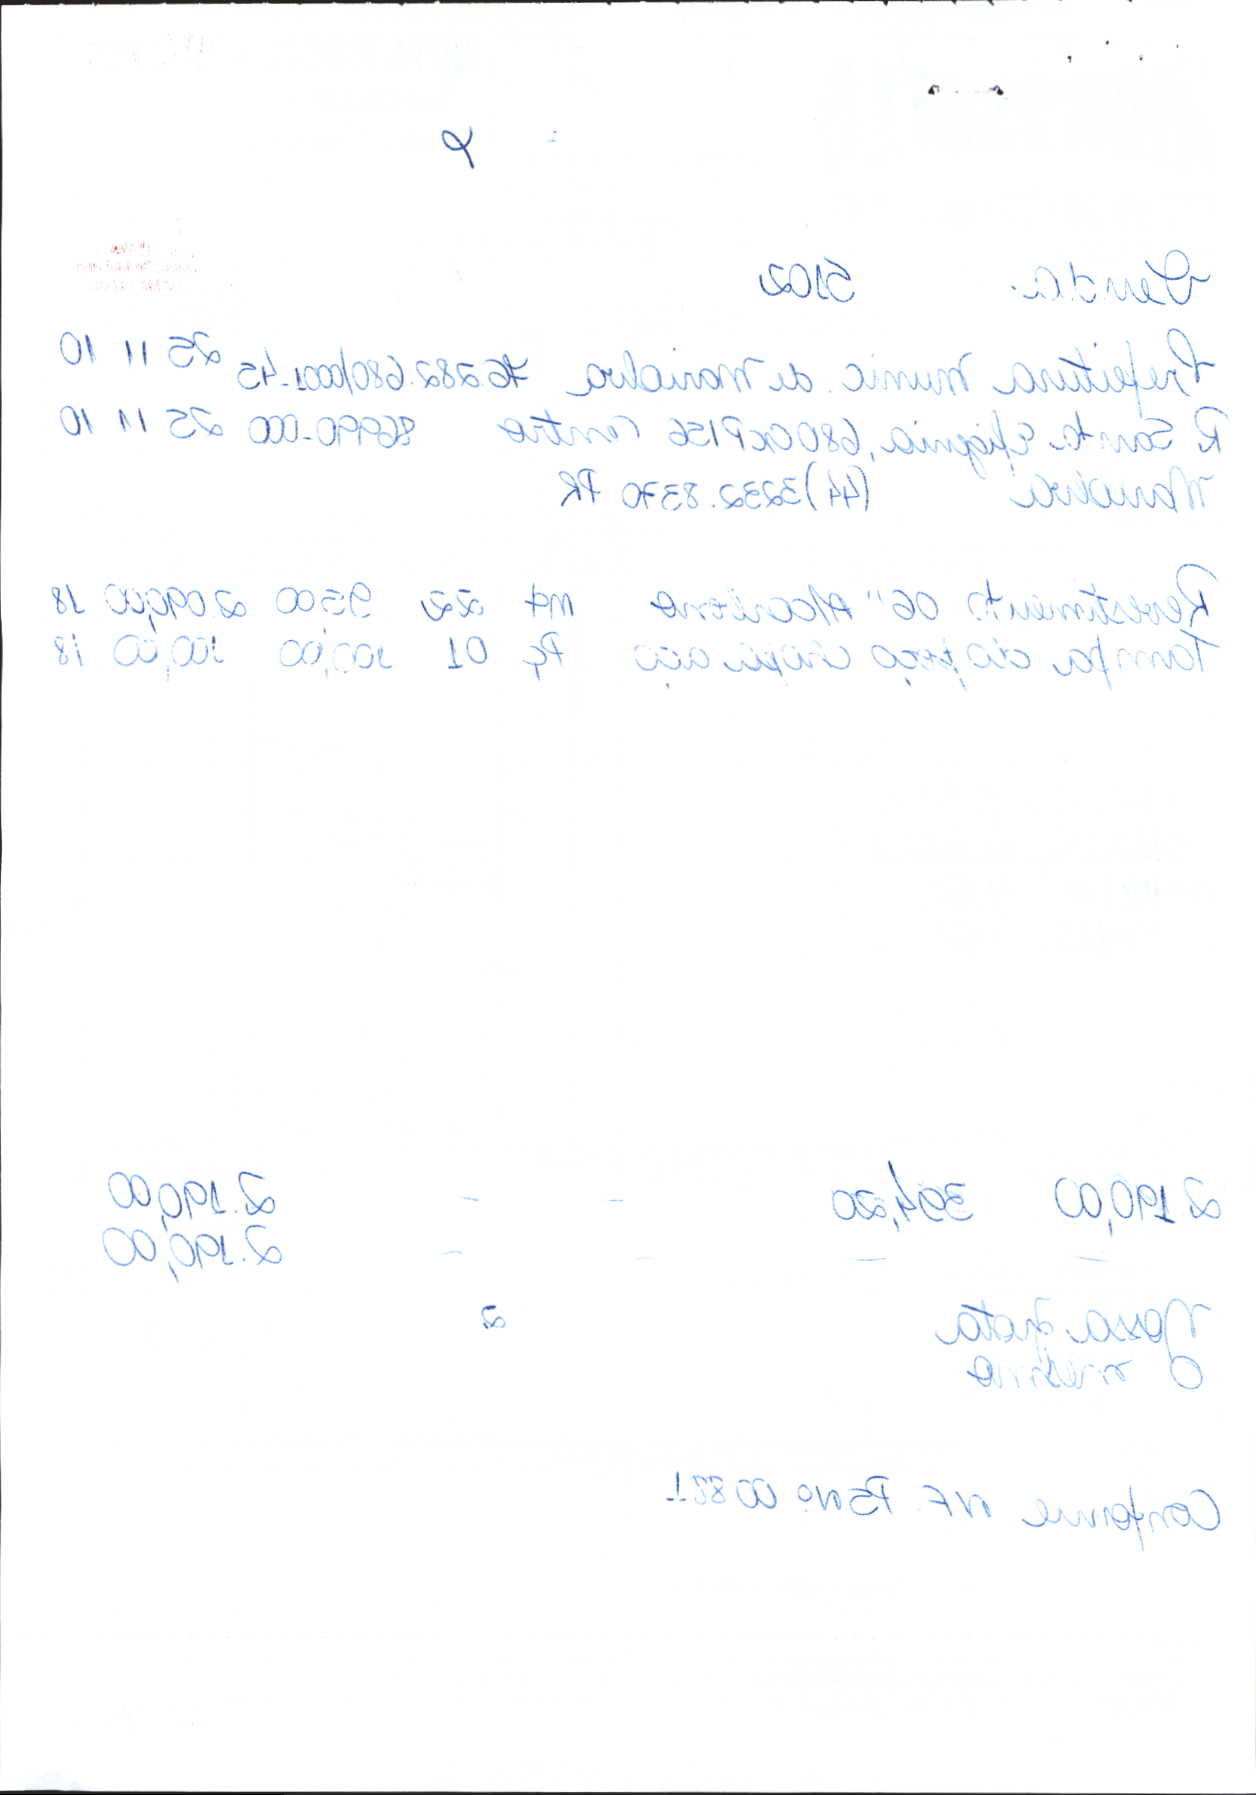 X
Venda 5102
Prefeitura Munic. de Marialva 76.282.680/0001-45 25 11 10
R Santa Efigenia, 680 CXP 156 Centro 86990-000 25 11 10
Marialva (44) 3232.8370 PR
Revestimento 06" A/carbono mt 22 95,00 2.090,00 18
Tampa do poço chapa aço Pç 01 100,00 100,00 18
2.190,00 394,20 - - 2.190,00
- - - - 2.190,00
Nossa frota 2
O mesmo
Conforme N.F. PS Nº 00881